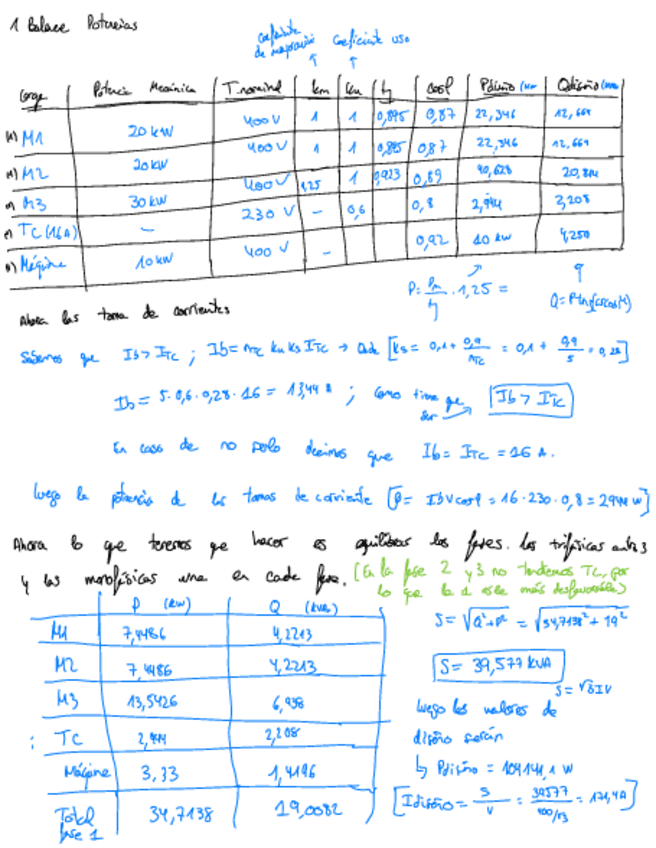 1 Balace Potencias
coeficiente de mayoración
Coeficiente uso
Carga | Potencia Mecánica | T nominal | km | ku | η | cosφ | Pdiseño (kW) | Qdiseño (kVAr)
M1 | 20 kW | 400 V | 1 | 1 | 0,895 | 0,87 | 22,346 | 12,664
M2 | 20 kW | 400 V | 1 | 1 | 0,895 | 0,87 | 22,346 | 12,664
M3 | 30 kW | 400 V | 1,25 | 1 | 0,923 | 0,89 | 40,628 | 20,814
TC (16A) | — | 230 V | – | 0,6 | 0,8 | 2,944 | 2,208
Máquina | 10 kW | 400 V | – | 0,92 | 10 kW | 4,250
P = Pm/η · 1,25 =
Q = P·tang(arcos(φ))
Ahora las toma de corrientes
Sabemos que Ib > ITC ; Ib = nTC ku ks ITC → Dnde [ks = 0,1 + 0,9/nTC = 0,1 + 0,9/5 = 0,28]
Ib = 5·0,6·0,28·16 = 13,44 A ; como tiene que ser → Ib > ITC
En caso de no serlo decimos que Ib = ITC = 16 A.
luego la potencia de las tomas de corriente [P = Ib V cosφ = 16·230·0,8 = 2944 W]
Ahora lo que tenemos que hacer es equilibrar las fases. Las trifásicas entre 3
y las monofásicas una en cada fase. (En la fase 2 y 3 no tendremos TC, por
lo que la 1 es la más desfavorable)
P (kW) | Q (kVAr)
M1 | 7,4486 | 4,2213
M2 | 7,4486 | 4,2213
M3 | 13,5426 | 6,938
TC | 2,944 | 2,208
Máquina | 3,33 | 1,4196
Total fase 1 | 34,7138 | 19,0082
S = √Q²+P² = √34,7138² + 19²
S = 39,577 kVA
S = √3 I V
luego los valores de
diseño serán
↳ Pdiseño = 104141,1 W
[Idiseño = S/V = 39577/400/√3 = 171,4 A]